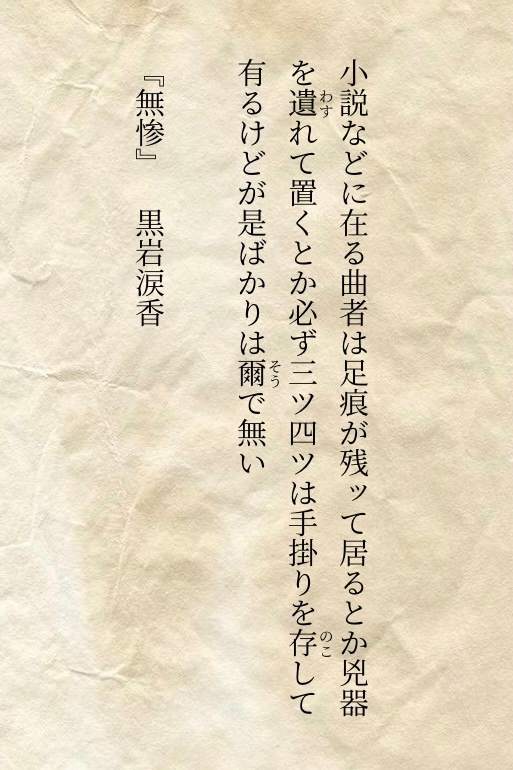 小説などに在る曲者は足痕が残ッて居るとか兇器
を遺れて置くとか必ず三ツ四ツは手掛りを存して
有るけどが是ばかりは爾で無い
『無惨』　黒岩涙香
わす
のこ
そう